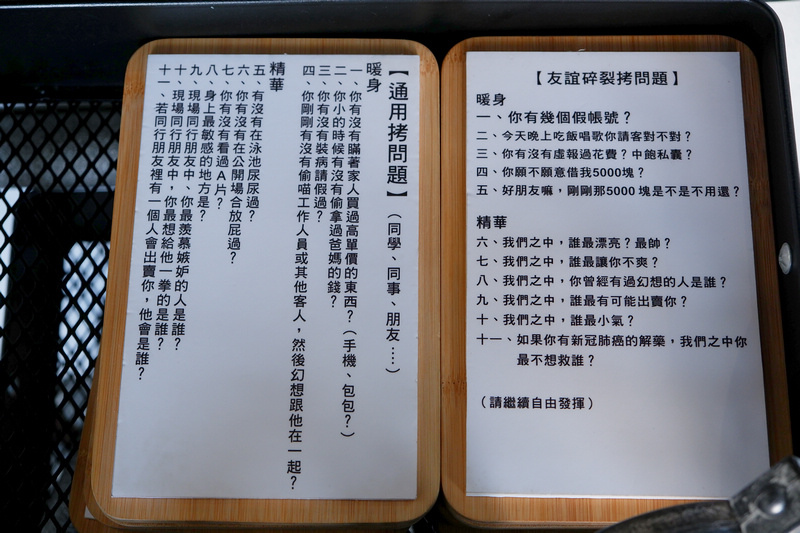 【通用拷問題】（同學、同事、朋友⋯⋯）
暖身
一、你有沒有瞞著家人買過高單價的東西？（手機、包包？）
二、你小的時候有沒有偷拿過爸媽的錢？
三、你有沒有裝病請假過？
四、你剛剛有沒有偷喵工作人員或其他客人，然後幻想跟他在一起？
精華
五、有沒有在泳池尿尿過？
六、你有沒有在公開場合放屁過？
七、你有沒有看過A片？
八、身上最敏感的地方是？
九、現場同行朋友中、你最羨慕嫉妒的人是誰？
十、現場同行朋友中，你最想給他一拳的是誰？
十一、若同行朋友裡有一個人會出賣你，他會是誰？
【友誼碎裂拷問題】
暖身
一、你有幾個假帳號？
二、今天晚上吃飯唱歌你請客對不對？
三、你有沒有虛報過花費？中飽私囊？
四、你願不願意借我5000塊？
五、好朋友嘛，剛剛那5000塊是不是不用還？
精華
六、我們之中，誰最漂亮？最帥？
七、我們之中，誰最讓你不爽？
八、我們之中，你曾經有過幻想的人是誰？
九、我們之中，誰最有可能出賣你？
十、我們之中，誰最小氣？
十一、如果你有新冠肺癌的解藥，我們之中你
最不想救誰？
（請繼續自由發揮）